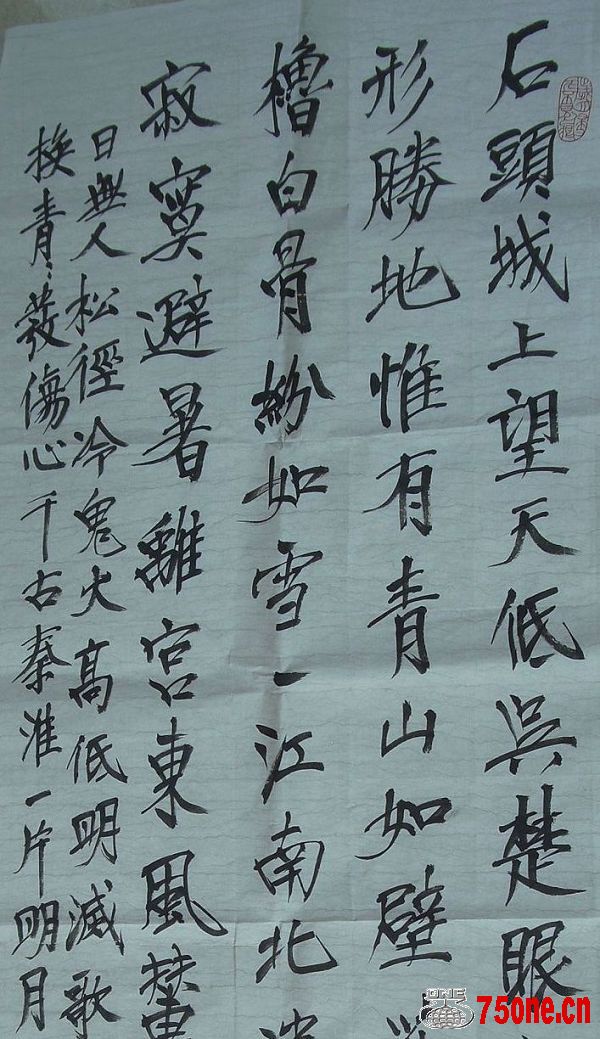 石頭城上望天低吳楚眼
形勝地惟有青山如壁
櫓白骨紛如雪一江南北
寂寞避暑離宮東風輦
日無人松徑冷鬼火高低明滅歌
換青々髮傷心千古秦淮一片明月
ONE
75one.cn